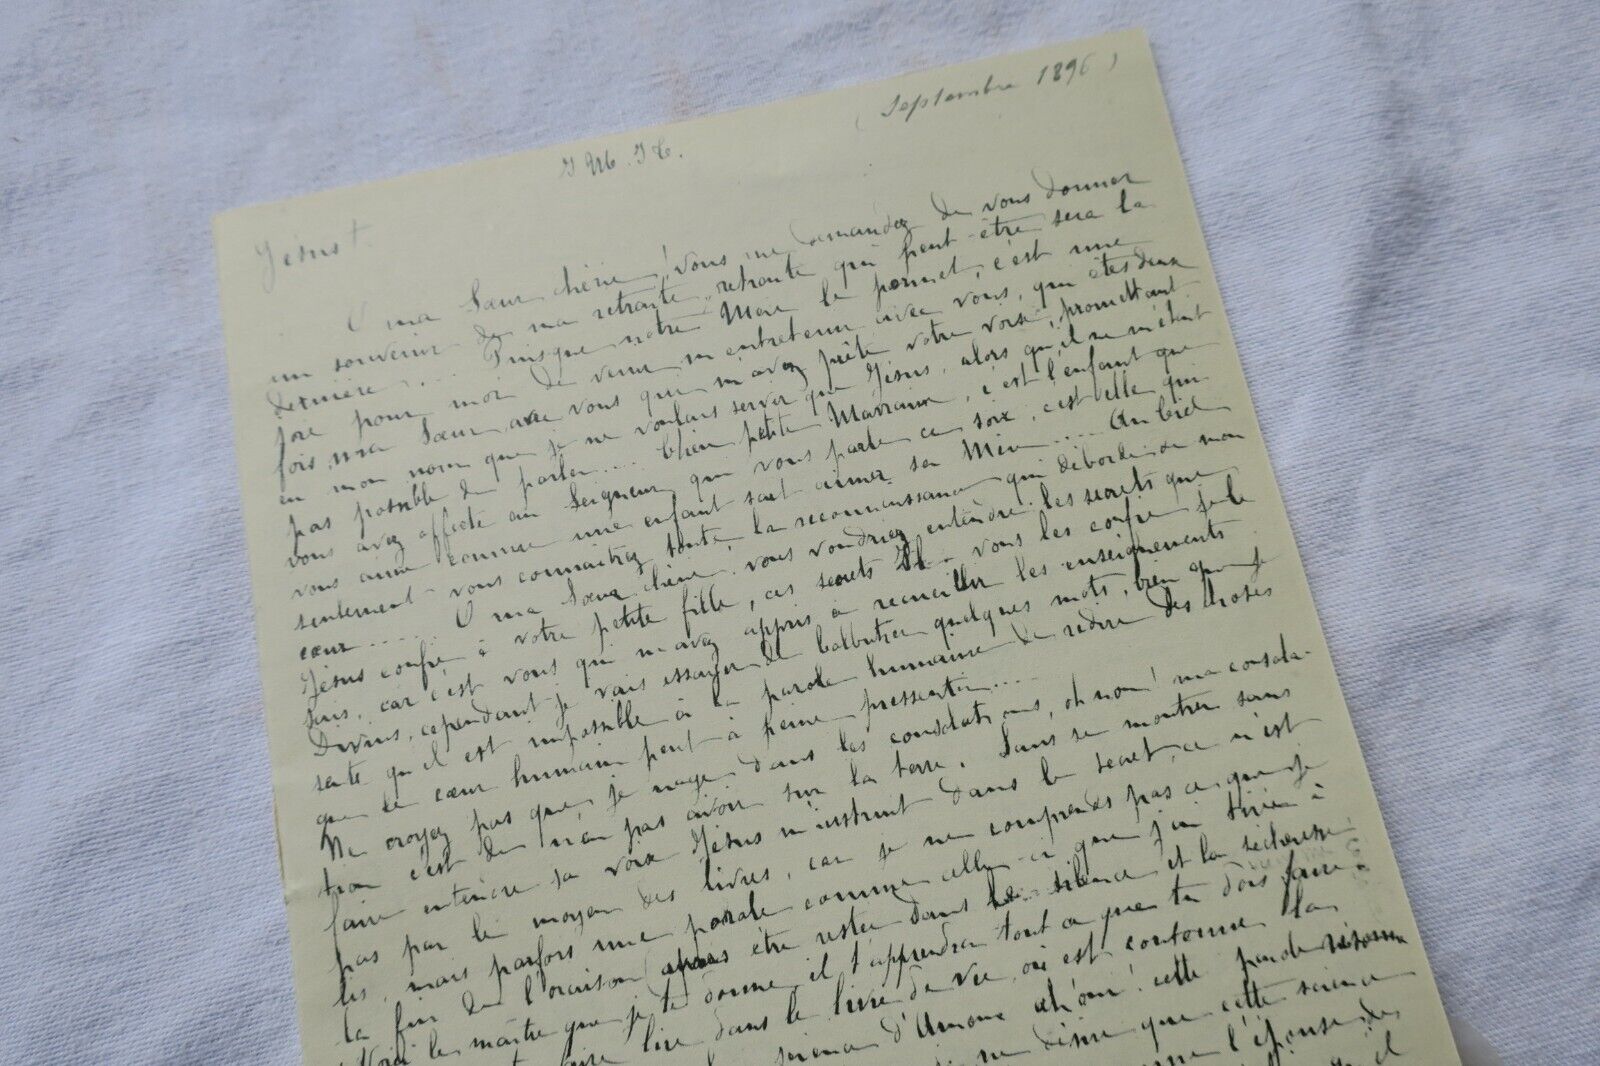 (Septembre 1896)
J. M. J. T.
Jésus †
O ma Sœur chérie! vous me demandez de vous donner
un souvenir de ma retraite, retraite qui peut-être sera la
dernière.... Puisque notre Mère le permet, c'est une
joie pour moi de venir m'entretenir avec vous, qui êtes deux
fois ma Sœur, avec vous qui m'avez prêté votre voix, promettant
en mon nom que je ne voulais servir que Jésus, alors qu'il ne m'était
pas possible de parler.... Chère petite Marraine, c'est l'enfant que
vous avez offerte au Seigneur qui vous parle ce soir, c'est elle qui
vous aime comme une enfant sait aimer sa Mère.... Au Ciel
seulement vous connaîtrez toute la reconnaissance qui déborde de mon
cœur..... O ma Sœur chérie, vous voudriez entendre les secrets que
Jésus confie à votre petite fille, ces secrets Il vous les confie je le
sais, car c'est vous qui m'avez appris à recueillir les enseignements
Divins, cependant je vais essayer de balbutier quelques mots, bien que je
sente qu'il est impossible à la parole humaine de redire des choses
que le cœur humain peut à peine pressentir....
Ne croyez pas que je nage dans les consolations, oh non! ma consola-
tion c'est de n'en pas avoir sur la terre. Sans se montrer, sans
faire entendre sa voix Jésus m'instruit dans le secret, ce n'est
pas par le moyen des livres, car je ne comprends pas ce que je
lis, mais parfois une parole comme celle-ci que j'ai tirée à
la fin de l'oraison (après être restée dans le silence et la sécheresse)
"Voici le maître que je te donne, il t'apprendra tout ce que tu dois faire.
faire lire dans le livre de vie, où est contenue la
science d'Amour ah! oui! cette parole résonne
ne désire que cette science
l'épouse des
il